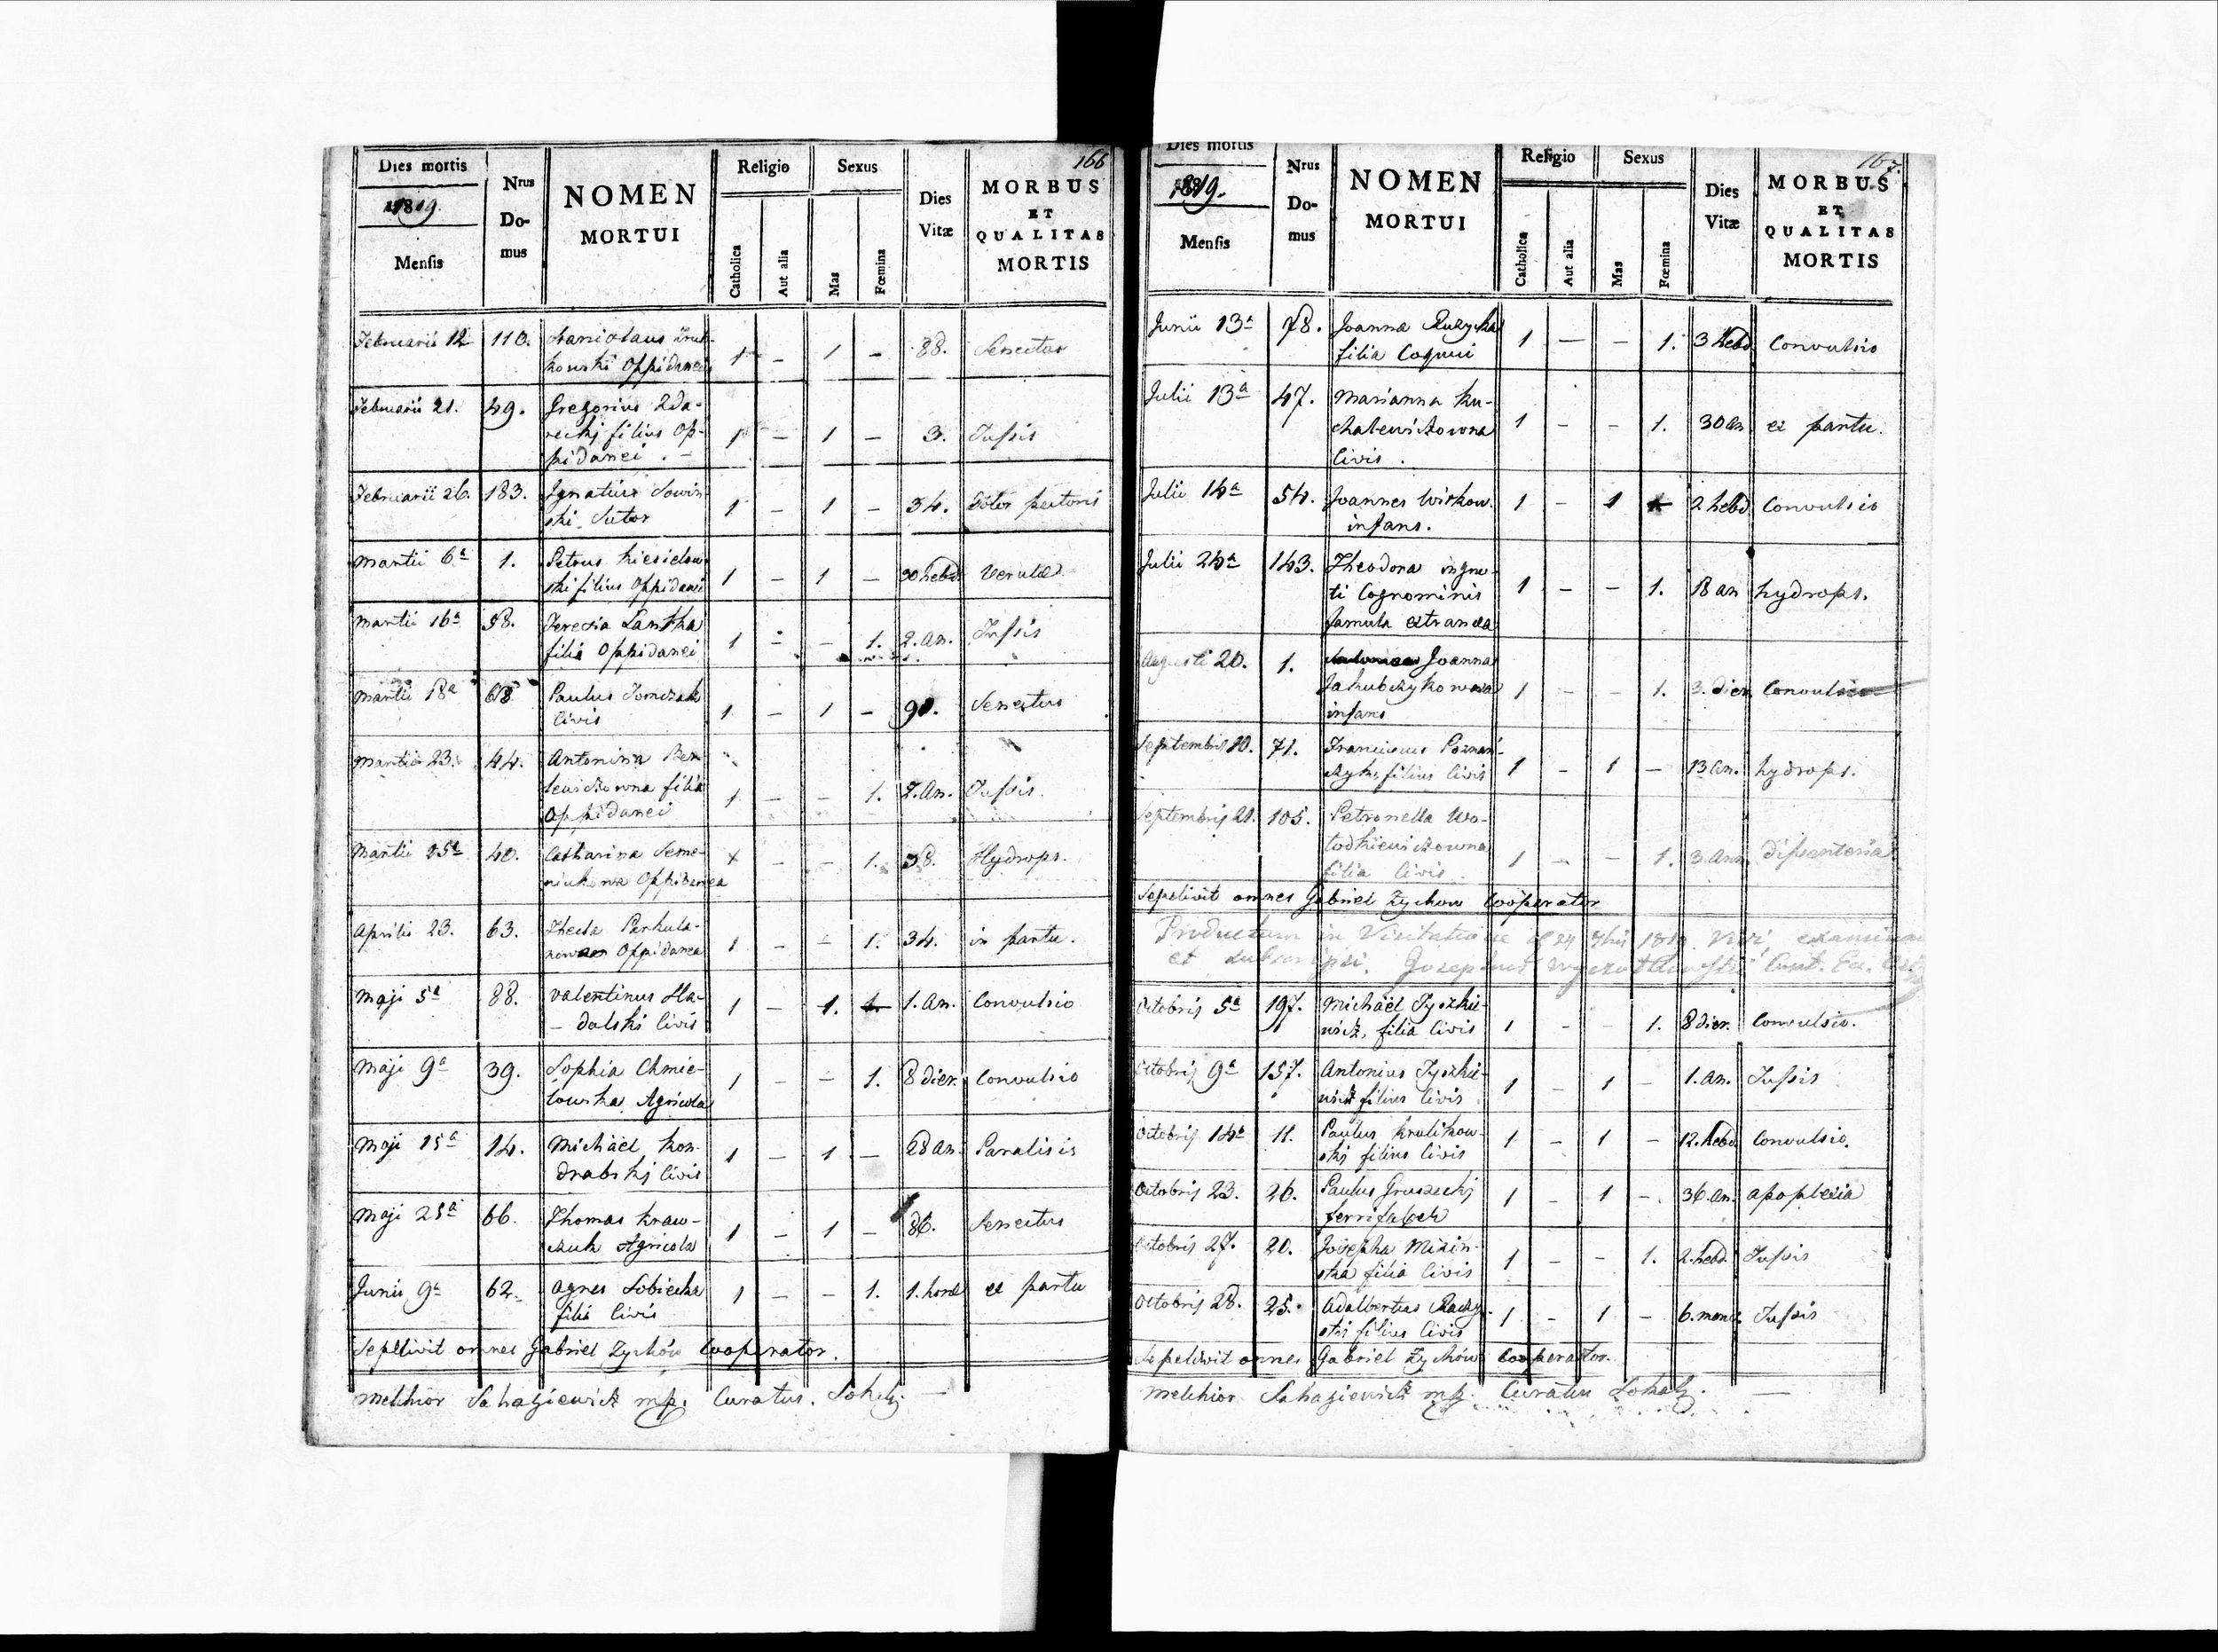 166
Dies mortis
1819.
Mensis
Nrus
Do-
mus
NOMEN
MORTUI
Religio
Catholica
Aut alia
Sexus
Mas
Fœmina
Dies
Vitæ
MORBUS
ET
QUALITAS
MORTIS
Februarii 12 110. Stanislaus
kowski Oppidaneus 1 - 1 - 88. Senectus
Februarii 21. 49. Gregorius Zda-
reckj filius Op-
pidanei. - 1 - 1 - 3. Tussis
Februarii 26. 183. Ignatius Sowin-
ski Sutor 1 - 1 - 34. Dolor pectoris
Martii 6a 1. Petrus
ski filius Oppidanei 1 - 1 - 30 hebd.
Martii 16a 58. Teresia
filia Oppidanei 1 - - 1. 2. an. Tussis
Martii 18a 68 Paulus Tomczak
Civis 1 - 1 - 90. Senectus
Martii 23. 44. Antonina Ben-
lewiczowna filia
Oppidanei 1 - - 1. 2. an. Tussis.
Martii 25a 40. Catharina Seme-
niukowa Oppidanea - - 1. 38. Hydrops.
Aprilis 23. 63. Thecla Parkula-
Oppidanea 1 - - 1. 34. in partu.
Maji 5a 88. Valentinus Ha-
- dalski Civis 1 - 1. 1. an. Convulsio
Maji 9a 39. Sophia Chmie-
lowska Agricola 1 - - 1. 8 dier. Convulsio
Maji 15a 14. Michaël Kon-
drabskj Civis 1 - 1 - 28 an. Paralisis
Maji 25a 66. Thomas Kraw-
czuk Agricola 1 - 1 - 86. Senectus
Junii 9a 62. Agnes Sobiecka
filia Civis 1 - - 1. 1. hora ex partu
Sepelivit omnes Gabriel Zychów Cooperator.
Melchior Sahagiewicz mp. Curatus.
167.
Dies mortis
1819.
Mensis
Nrus
Do-
mus
NOMEN
MORTUI
Religio
Catholica
Aut alia
Sexus
Mas
Fœmina
Dies
Vitæ
MORBUS
ET
QUALITAS
MORTIS
Junii 13a 78. Joanna Ruzycka
filia Coqui 1 - - 1. 3 hebd Convulsio
Julii 13a 47. Marianna Ku-
chalewiczowna
Civis. 1 - - 1. 30 an ex partu.
Julii 14a 54. Joannes Witkow.
infans. 1 - 1 2 hebd Convulsio
Julii 24a 143. Theodora igno-
ti Cognominis
famula extranea 1 - - 1. 18 an hydrops.
Augusti 20. 1. Joanna
Jakubczykowna
infans 1 - - 1. 3. dier Convulsio
Septembris 10. 71. Franciscus Poznań-
czyk, filius Civis 1 - 1 - 13 an. hydrops.
Septembris 21. 105. Petronella Wo-
lodkiewiczowna
filia Civis. 1 - - 1. 3. ann. dissenteria
Sepelivit omnes Gabriel Zychow Cooperator
Productum in Visitatione 24 7bris 1819. Vidi, examinavi
et subscripsi. Josephus
Octobris 5a 197. Michaël Tyszkie-
wicz, filia Civis 1 - - 1. 8 dier. Convulsio.
Octobris 9a 157. Antonius Tyszkie-
wicz filius Civis 1 - 1 - 1. an. Tussis
Octobris 14a 11. Paulus Krulikow-
skj filius Civis 1 - 1 - 12. hebd Convulsio.
Octobris 23. 26. Paulus Gruszeckj
ferrifaber 1 - 1 - 36. an. apoplexia
Octobris 27. 20. Josepha Mizin-
ska filia Civis 1 - - 1. 2. hebd. Tussis
Octobris 28. 25. Adalbertus
filius Civis 1 - 1 - 6. mens. Tussis
Sepelivit omnes Gabriel Zychów Cooperator.
Melchior Sahagiewicz mp. Curatus